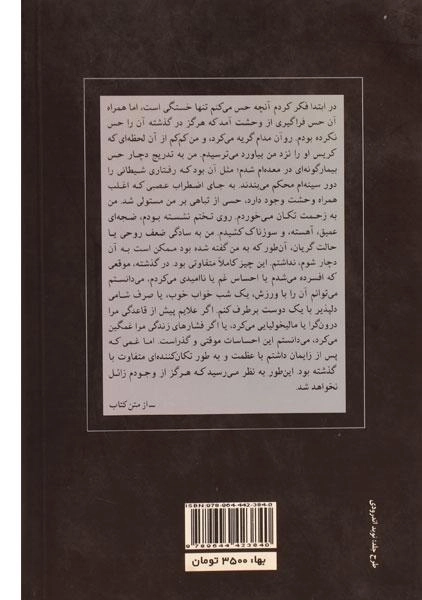 در ابتدا فکر کردم آنچه حس می‌کنم تنها خستگی است، اما همراه
آن حس فراگیری از وحشت آمد که هرگز در گذشته آن را حس
نکرده بودم. روآن مدام گریه می‌کرد، و من کم‌کم از آن لحظه‌ای که
کریس او را نزد من بیاورد می‌ترسیدم. من به تدریج دچار حس
بیمارگونه‌ای در معده‌ام شدم؛ مثل آن بود که رفتاری شیطانی را
دور سینه‌ام محکم می‌بندند. به جای اضطراب عصبی که اغلب
همراه وحشت وجود دارد، حسی از تباهی بر من مستولی شد. من
به زحمت تکان می‌خوردم. روی تختم نشسته بودم، ضجه‌ای
عمیق، آهسته، و سوزناک کشیدم. من به سادگی ضعف روحی یا
حالت گریان، آن‌طور که به من گفته شده بود ممکن است به آن
دچار شوم، نداشتم. این چیز کاملاً متفاوتی بود. در گذشته، موقعی
که افسرده می‌شدم یا احساس غم یا ناامیدی می‌کردم، می‌دانستم
می‌توانم آن را با ورزش، یک شب خواب خوب، یا صرف شامی
دلپذیر با یک دوست برطرف کنم. اگر علایم پیش از قاعدگی مرا
درون‌گرا یا مالیخولیایی می‌کرد، یا اگر فشارهای زندگی مرا غمگین
می‌کرد، می‌دانستم این احساسات موقتی و گذراست. اما غمی که
پس از زایمان داشتم با عظمت و به طور تکان‌کننده‌ای متفاوت با
گذشته بود. این‌طور به نظر می‌رسید که هرگز از وجودم زائل
نخواهد شد.
ــ از متن کتاب
ISBN 978-964-442-384-0
9789644423840
بها: ۳۵۰۰ تومان
طرح جلد: نوید اندرودی